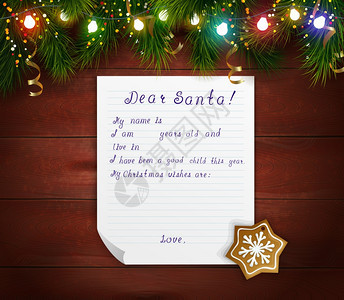 Dear Santa!
My name is
I am years old and
live in
I have been a good child this year.
My Christmas wishes are:
Love,